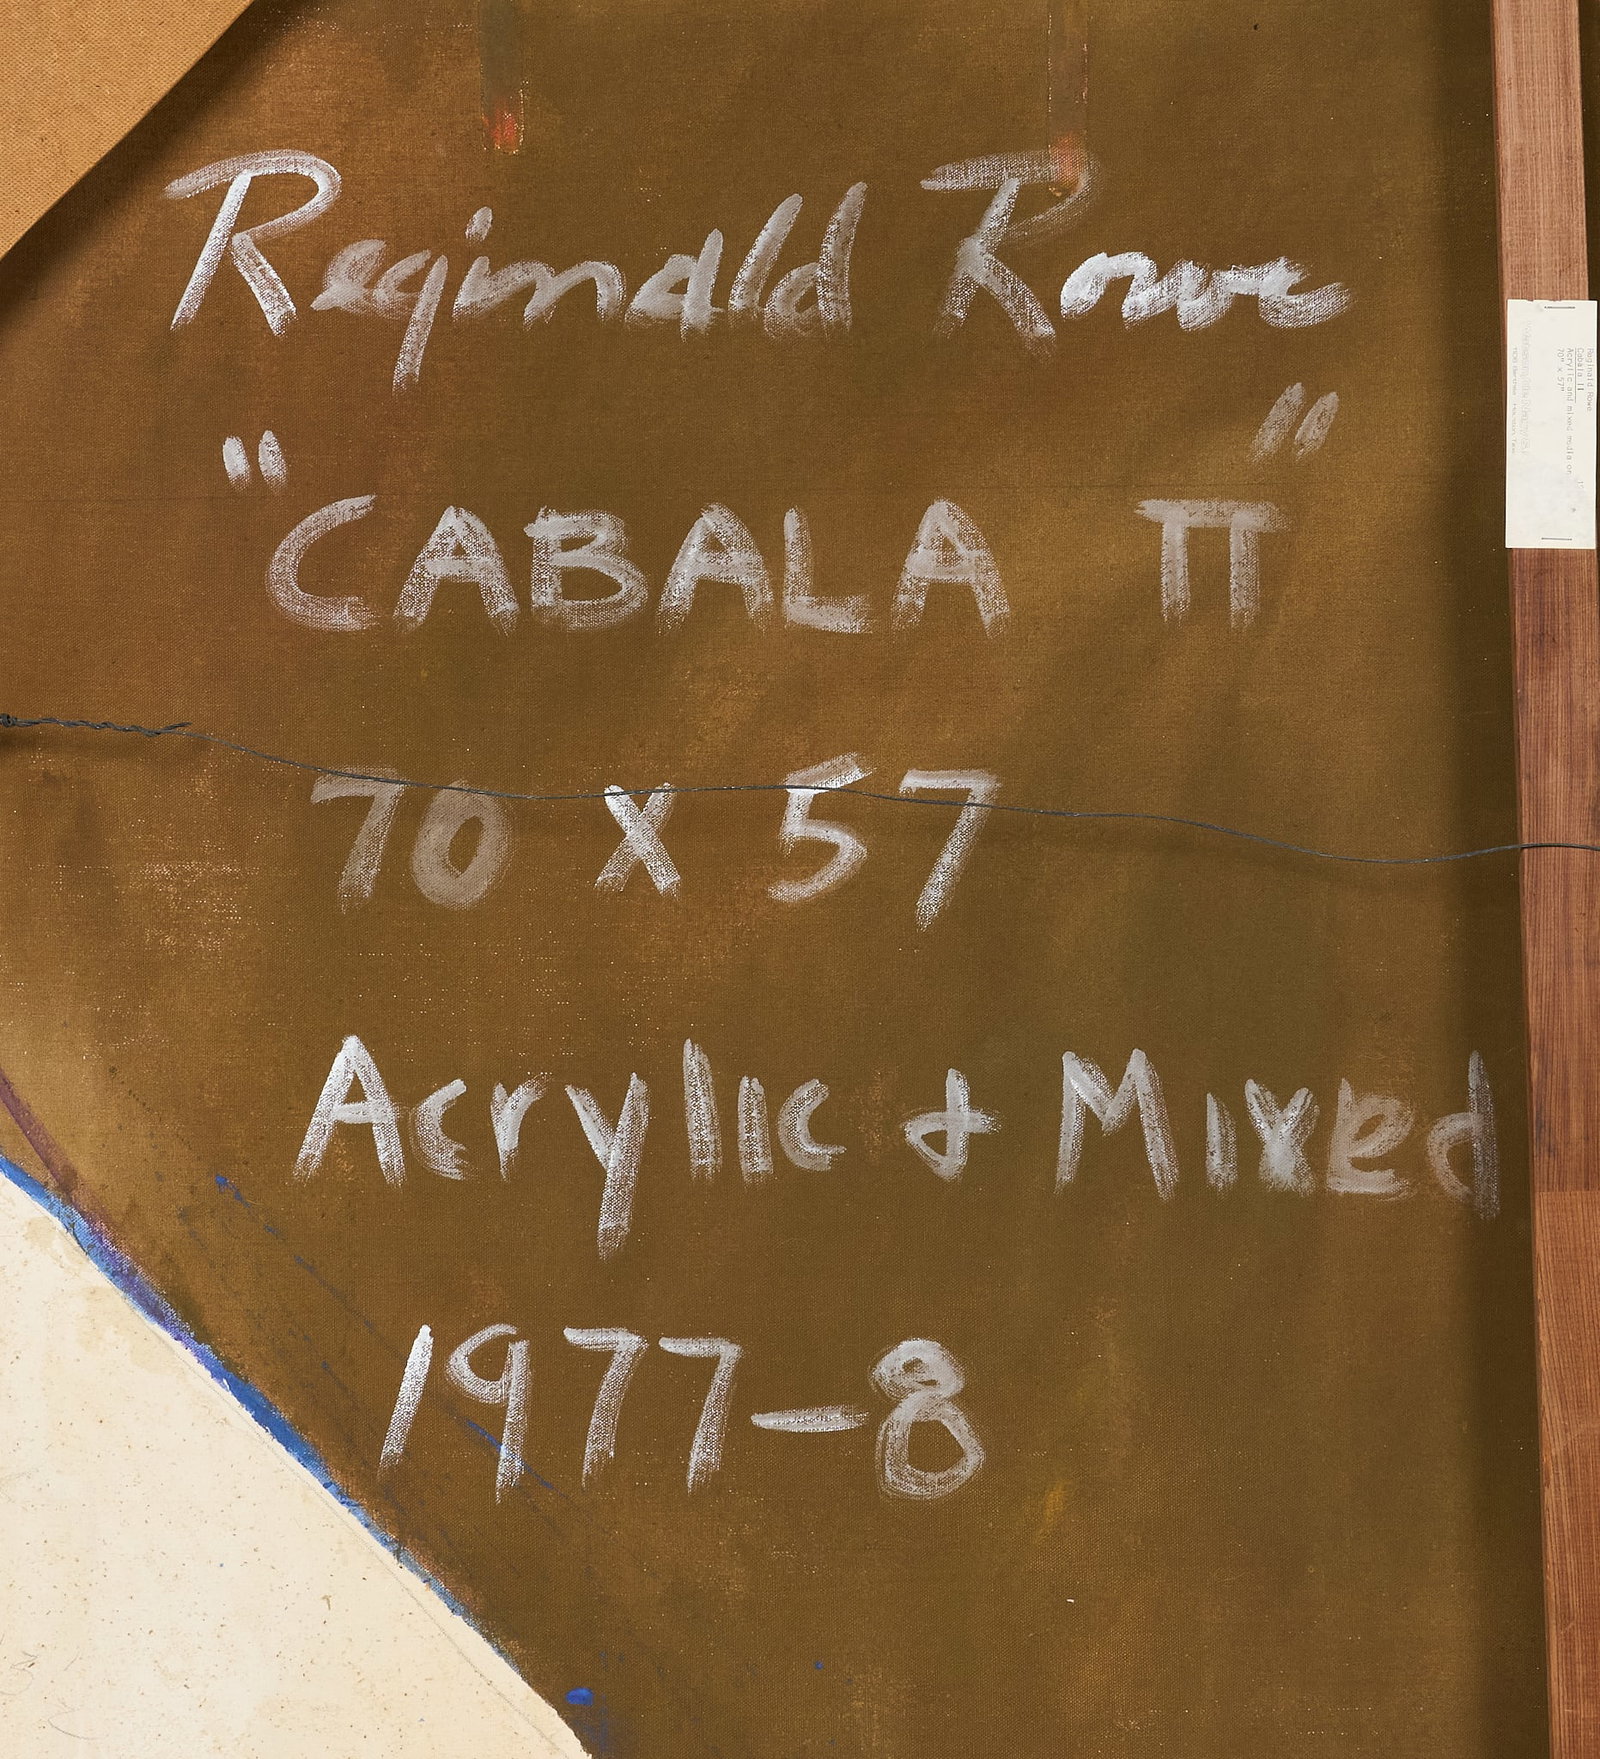 Reginald Rowe
"CABALA II"
70 X 57
Acrylic & Mixed
1977-8
Reginald Rowe
Cabala II
Acrylic and mixed media on
70" x 57"